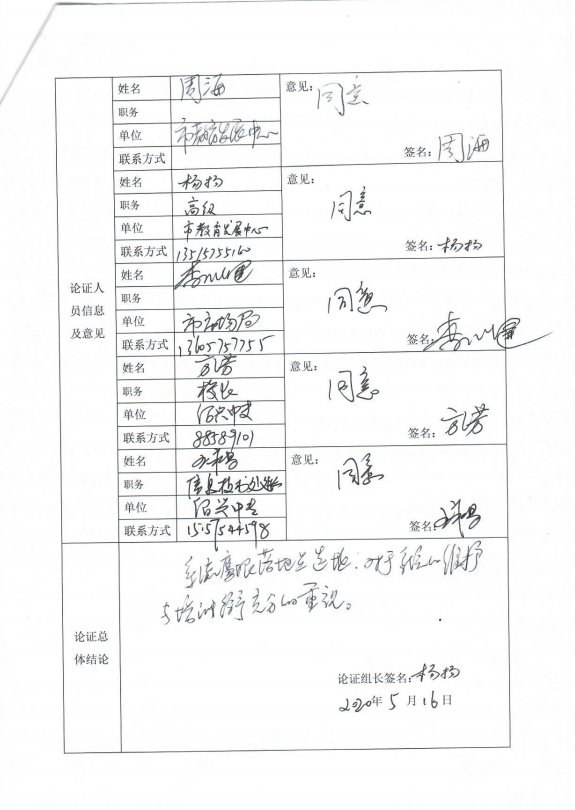 姓名 周海 意见: 同意
职务
单位 市教育发展中心
联系方式 签名: 周海
姓名 杨扬 意见:
职务 高级 同意
单位 市教育发展中心
联系方式 13515755160 签名: 杨扬
论证人员信息及意见
姓名 意见:
职务 同意
单位 市市场局
联系方式 13605757755 签名:
姓名 方芳 意见:
职务 校长 同意
单位 绍兴中专
联系方式 88589101 签名: 方芳
姓名 意见:
职务 同意
单位 绍兴中专
联系方式 15157544598 签名:
落地 对于系统的维护
与培训 充分的重视。
论证总
体结论
论证组长签名: 杨扬
2020年 5 月 16 日